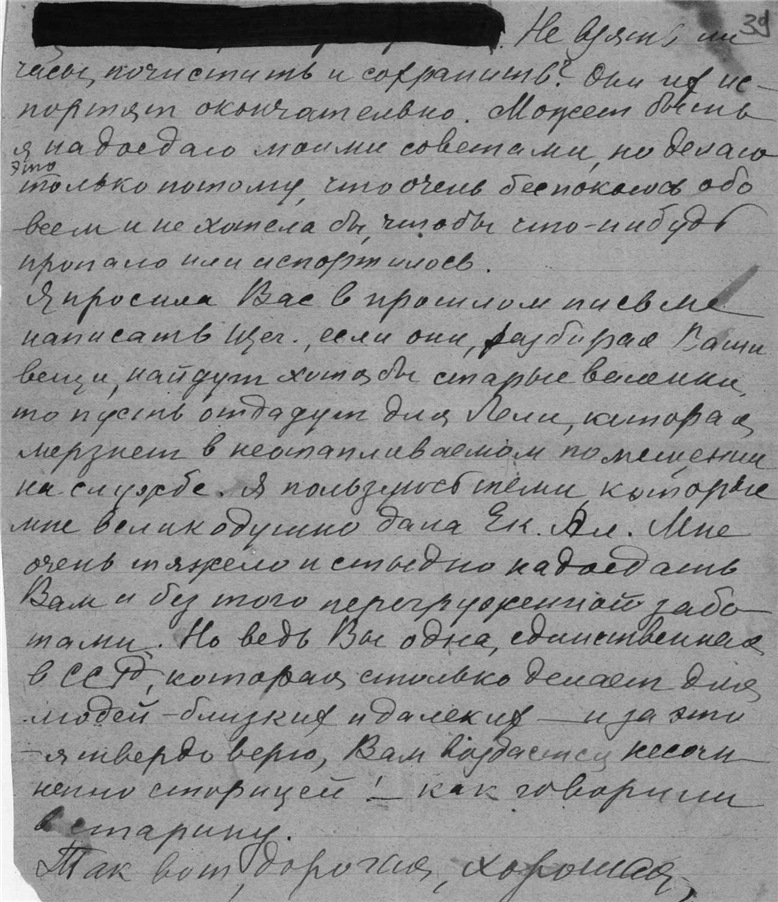 39
Не взять ли
часы, почистить и сохранить? Они их ис-
портят окончательно. Может быть
я надоедаю моими советами, но делаю
это
только потому, что очень беспокоюсь обо
всем и не хотела бы, чтобы что-нибудь
пропало или испортилось.
Я просила Вас в прошлом письме
написать Щег., если они, разбирая Ваши
вещи, найдут хотя бы старые валенки,
то пусть отдадут для Лели, которая
мерзнет в неотапливаемом помещении
на службе. Я пользуюсь теми, которые
мне великодушно дала Ек. Ал. Мне
очень тяжело и стыдно надоедать
Вам и без того перегруженной забо-
тами. Но ведь Вы одна, единственная
в СССР, которая столько делает для
людей – близких и далеких – и за это
– я твердо верю, Вам воздастся несом-
ненно сторицей! – как говорили
в старину.
Так вот, дорогая, хорошая,